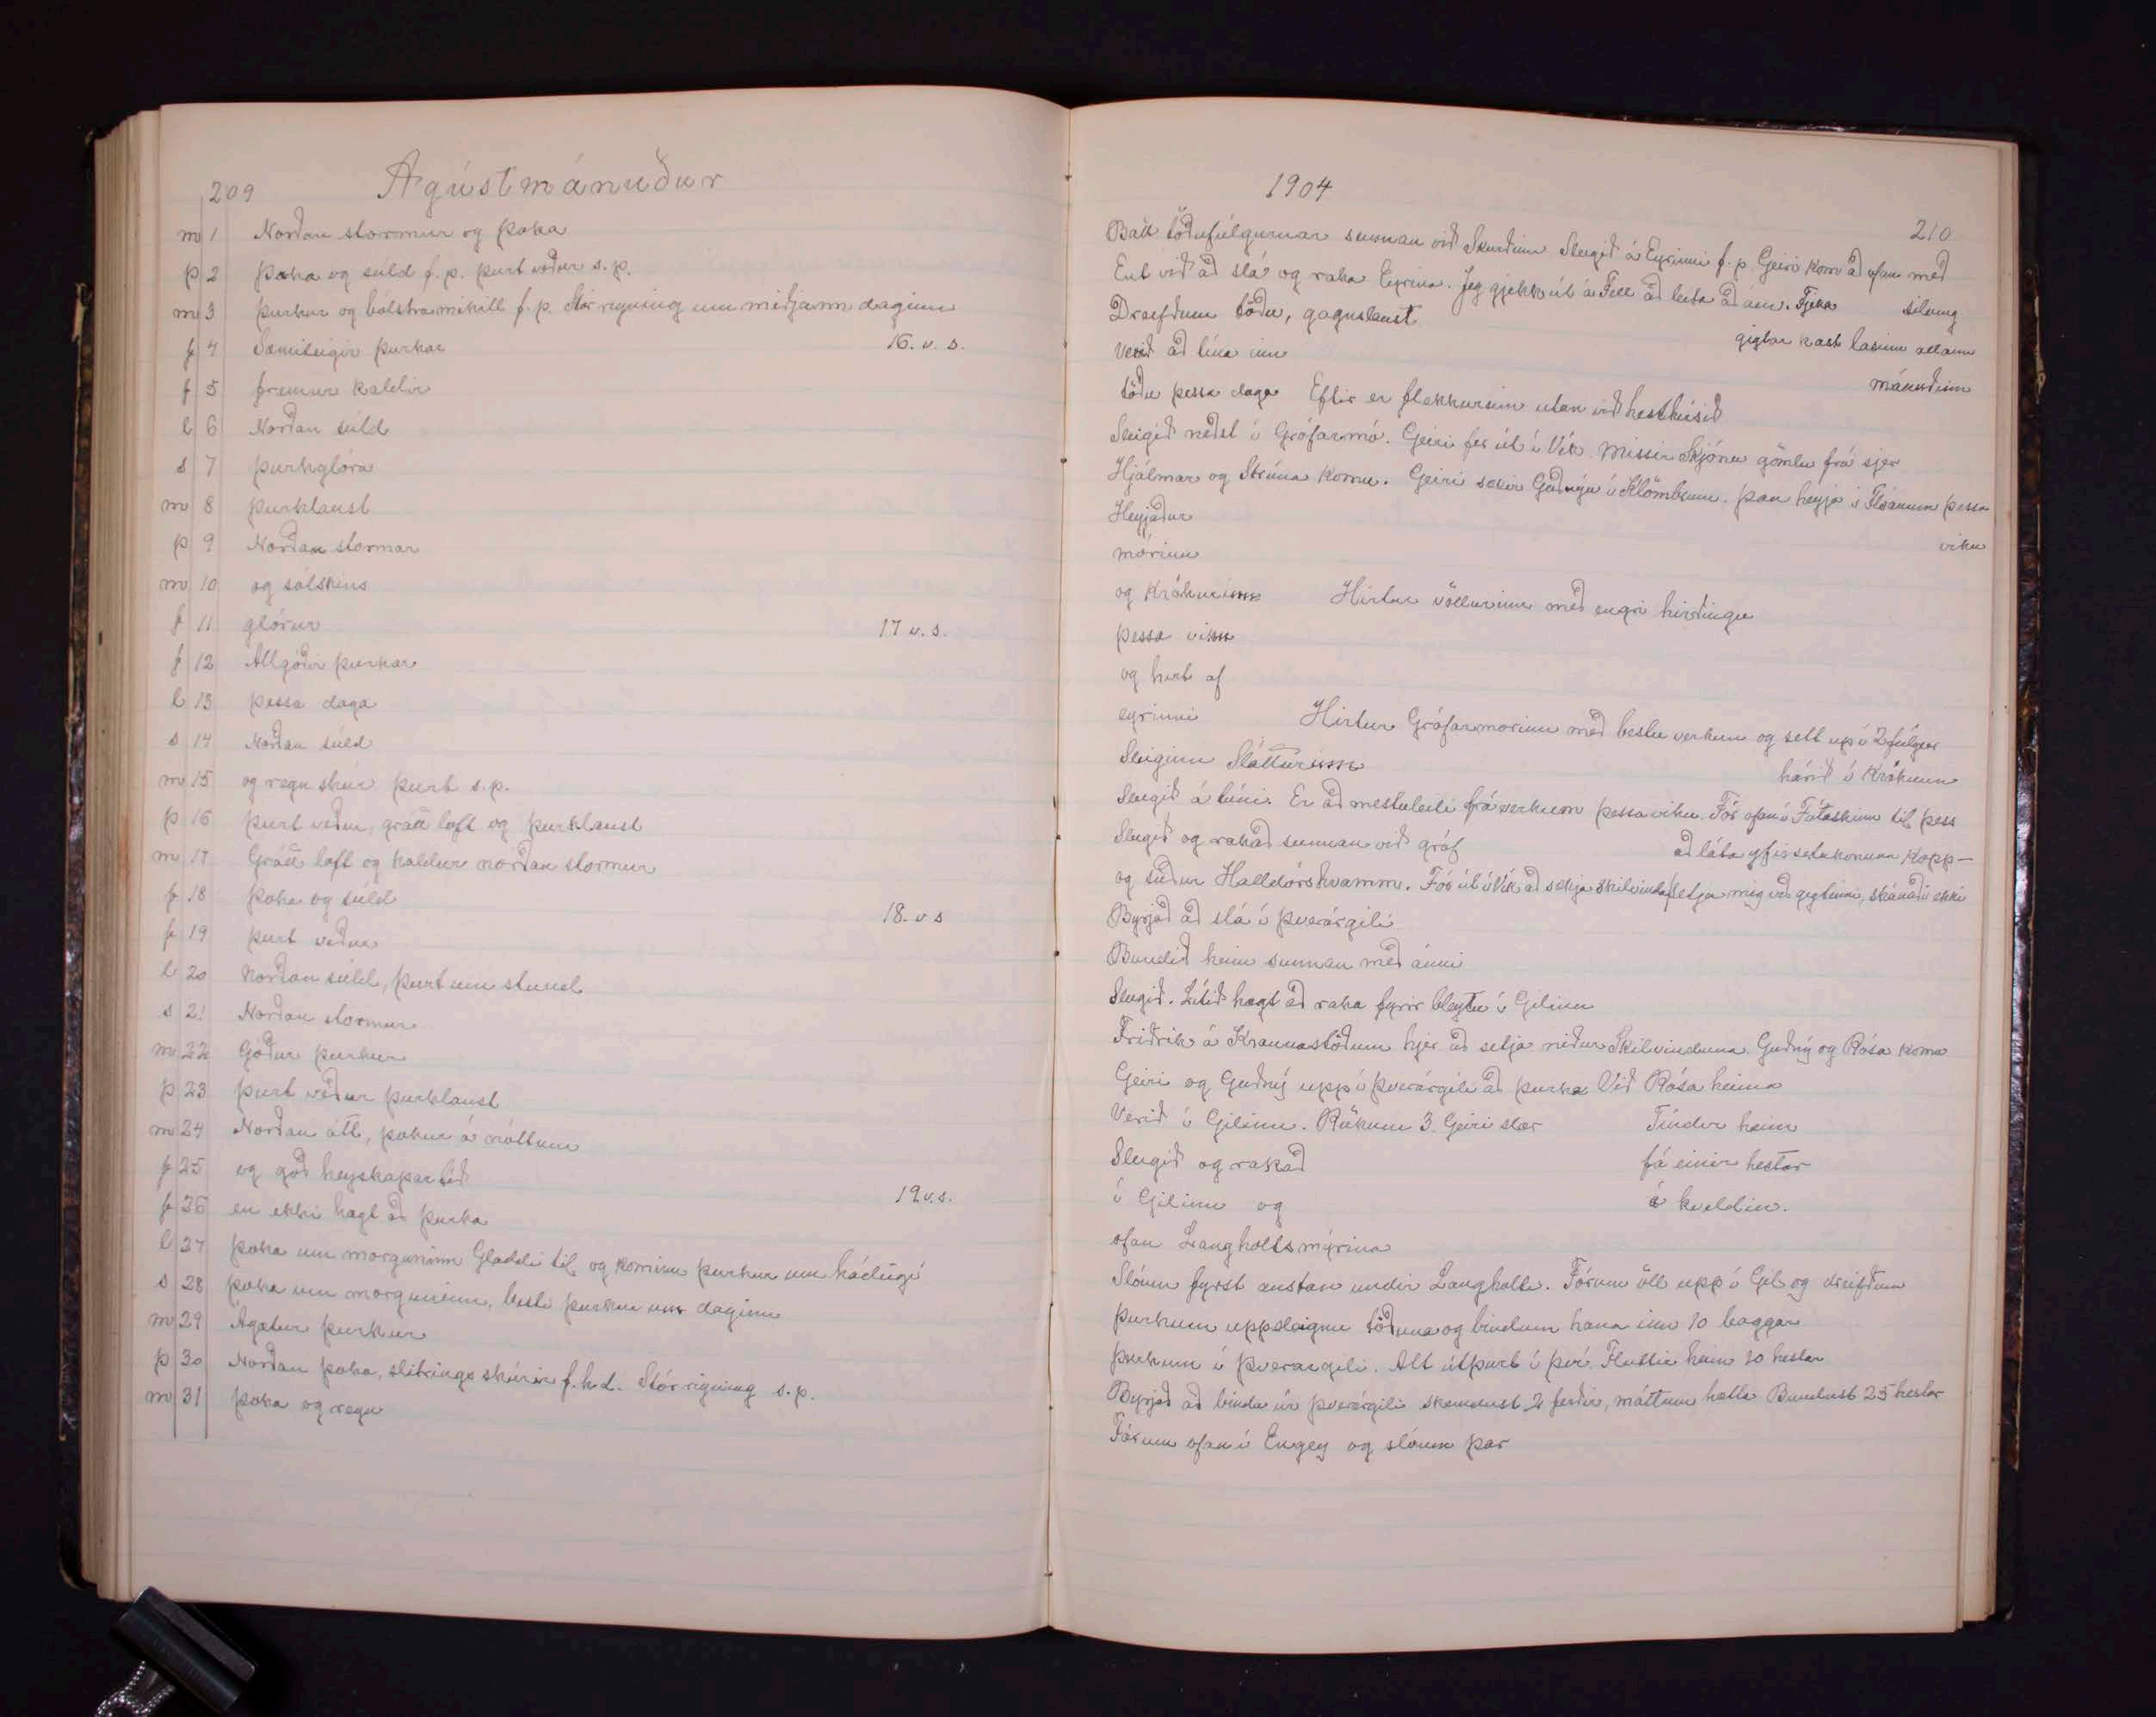 209 Ágústmánuður
m 1 Norðan stormur og þoka
þ 2 þoka og súld f.p. þurt veður s.p.
m 3 þurkur og bólstra mikill f.p. Stór regning um miðjann daginn
f 4 Sæmilegir þurkar 16. v. s.
f 5 fremur kaldir
l 6 Norðan súld
s 7 þurkglóra
m 8 þurklaust
þ 9 Norðan stormar
m 10 og sólskins
f 11 glórur 17 v. s.
f 12 Allgóðir þurkar
l 13 þessa daga
s 14 Norðan súld
m 15 og regn skúr þurt s.p.
þ 16 þurt veður, grátt loft og þurklaust
m 17 Grátt loft og kaldur norðan stormur
f 18 þoka og súld 18. v s
f 19 þurt veður
l 20 Norðan súld, þurt um stund
s 21 Norðan stormur
m 22 Góður þurkur
þ 23 þurt veður þurklaust
m 24 Norðan átt, þokur á nóttum
f 25 og góð heyskapar tíð 19 v. s.
f 26 en ekki hægt að þurka
l 27 þoka um morguninn Gladdi til og kominn þurkur um hádegi
s 28 þoka um morguninn, besti þurkur um daginn
m 29 Ágætur þurkur
þ 30 Norðan þoka, slitrings skúrir f.h.d. Stórrigning s.p.
m 31 þoka og regn
1904
210
töðufúlgurnar sunnan við Skurðinn Slegið á Eyrinni f.p. Geiri kom að ofan með
silung
við að slá og raka Eyrina. Jeg gjekk út á Fell að leita að am. Fjekk
gigtar kast lasinn allann
mánuðinn
Dreifðum töðu, gagnslaust
Verið að tína inn
töðu þessa daga Eftir er flekkurinn utan við hesthúsið
Slegið neðst í Grófarmó. Geiri fer út í Vík. Missir Skjónu gömlu frá sjer
Hjálmar og Strúna komu. Geiri sækir Guðnýu í Klömbrum. þau heyja í Flóanum þessa
viku
Heyjaður
mórinn
og Krókurinn Hirtur völlurinn með engri hirðingu
þessa viku
og hirt af
eyrinni Hirtur Grófarmorinn með bestu verkun og sett up í 2 fúlgur
háið í Króknum
Sleginn Slátturinn
Slegið á túni. Er að mestuleiti frá verkum þessa viku. Fór ofan í Fótaskinn til þess
að láta yfirsetukonuna Kopp-
Slegið og rakað sunnan við gróf
og suður Halldórshvamm. Fór út í Vík að sækja skilvindu setja mig við gigtinni, skánaði ekki
Byrjað að slá í þverárgili
Bundið heim sunnan með ánni
Slegið. Lítið hægt að raka fyrir bleytu í Gilinu
Friðrik á Kraunastöðum hjer að setja niður Skilvinduna. Guðný og Rósa komu
Geiri og Guðný upp í þverárgili að þurka Við Rósa heima
Verið í Gilinu. Rökum 3. Geiri slær Tíndir heim
Slegið og rakað fá einir hestar
í Gilinu og á kveldin.
ofan Langholtsmýrina
Slóum fyrst austan undir Langholti. Fórum öll upp í Gil og dreifðum
þurkum uppslegnu töðuna og bindum hana inn 10 baggar
þurkum í þverárgili. Alt útþurt í því. Fluttir heim 20 hestar
Byrjað að binda úr þverárgili skemdust 2 ferðir, máttum hætta Bundust 25 hestar
Fórum ofan í Engey og slóum þar